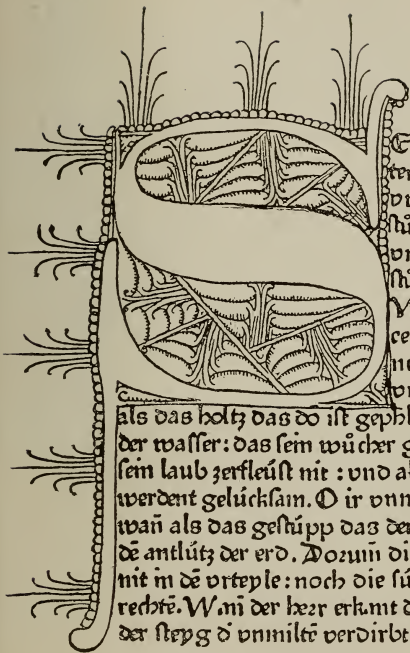 S
E
ten
vn
stü
vn
stü
V
ce
ne
vn
als das holtz das do ist gephl
der wasser: das sein wůcher g
sein laub zerfleüst nit : vnd a
werdent gelücksam. O ir vnm
wañ als das gestüpp das der
dē antlütz der erd. Dorum̄ di
nit in dē vrteyle: noch die sü
rechtē. Wañ der herr erkent d
der steyg d̛ vnmiltē verdirbt